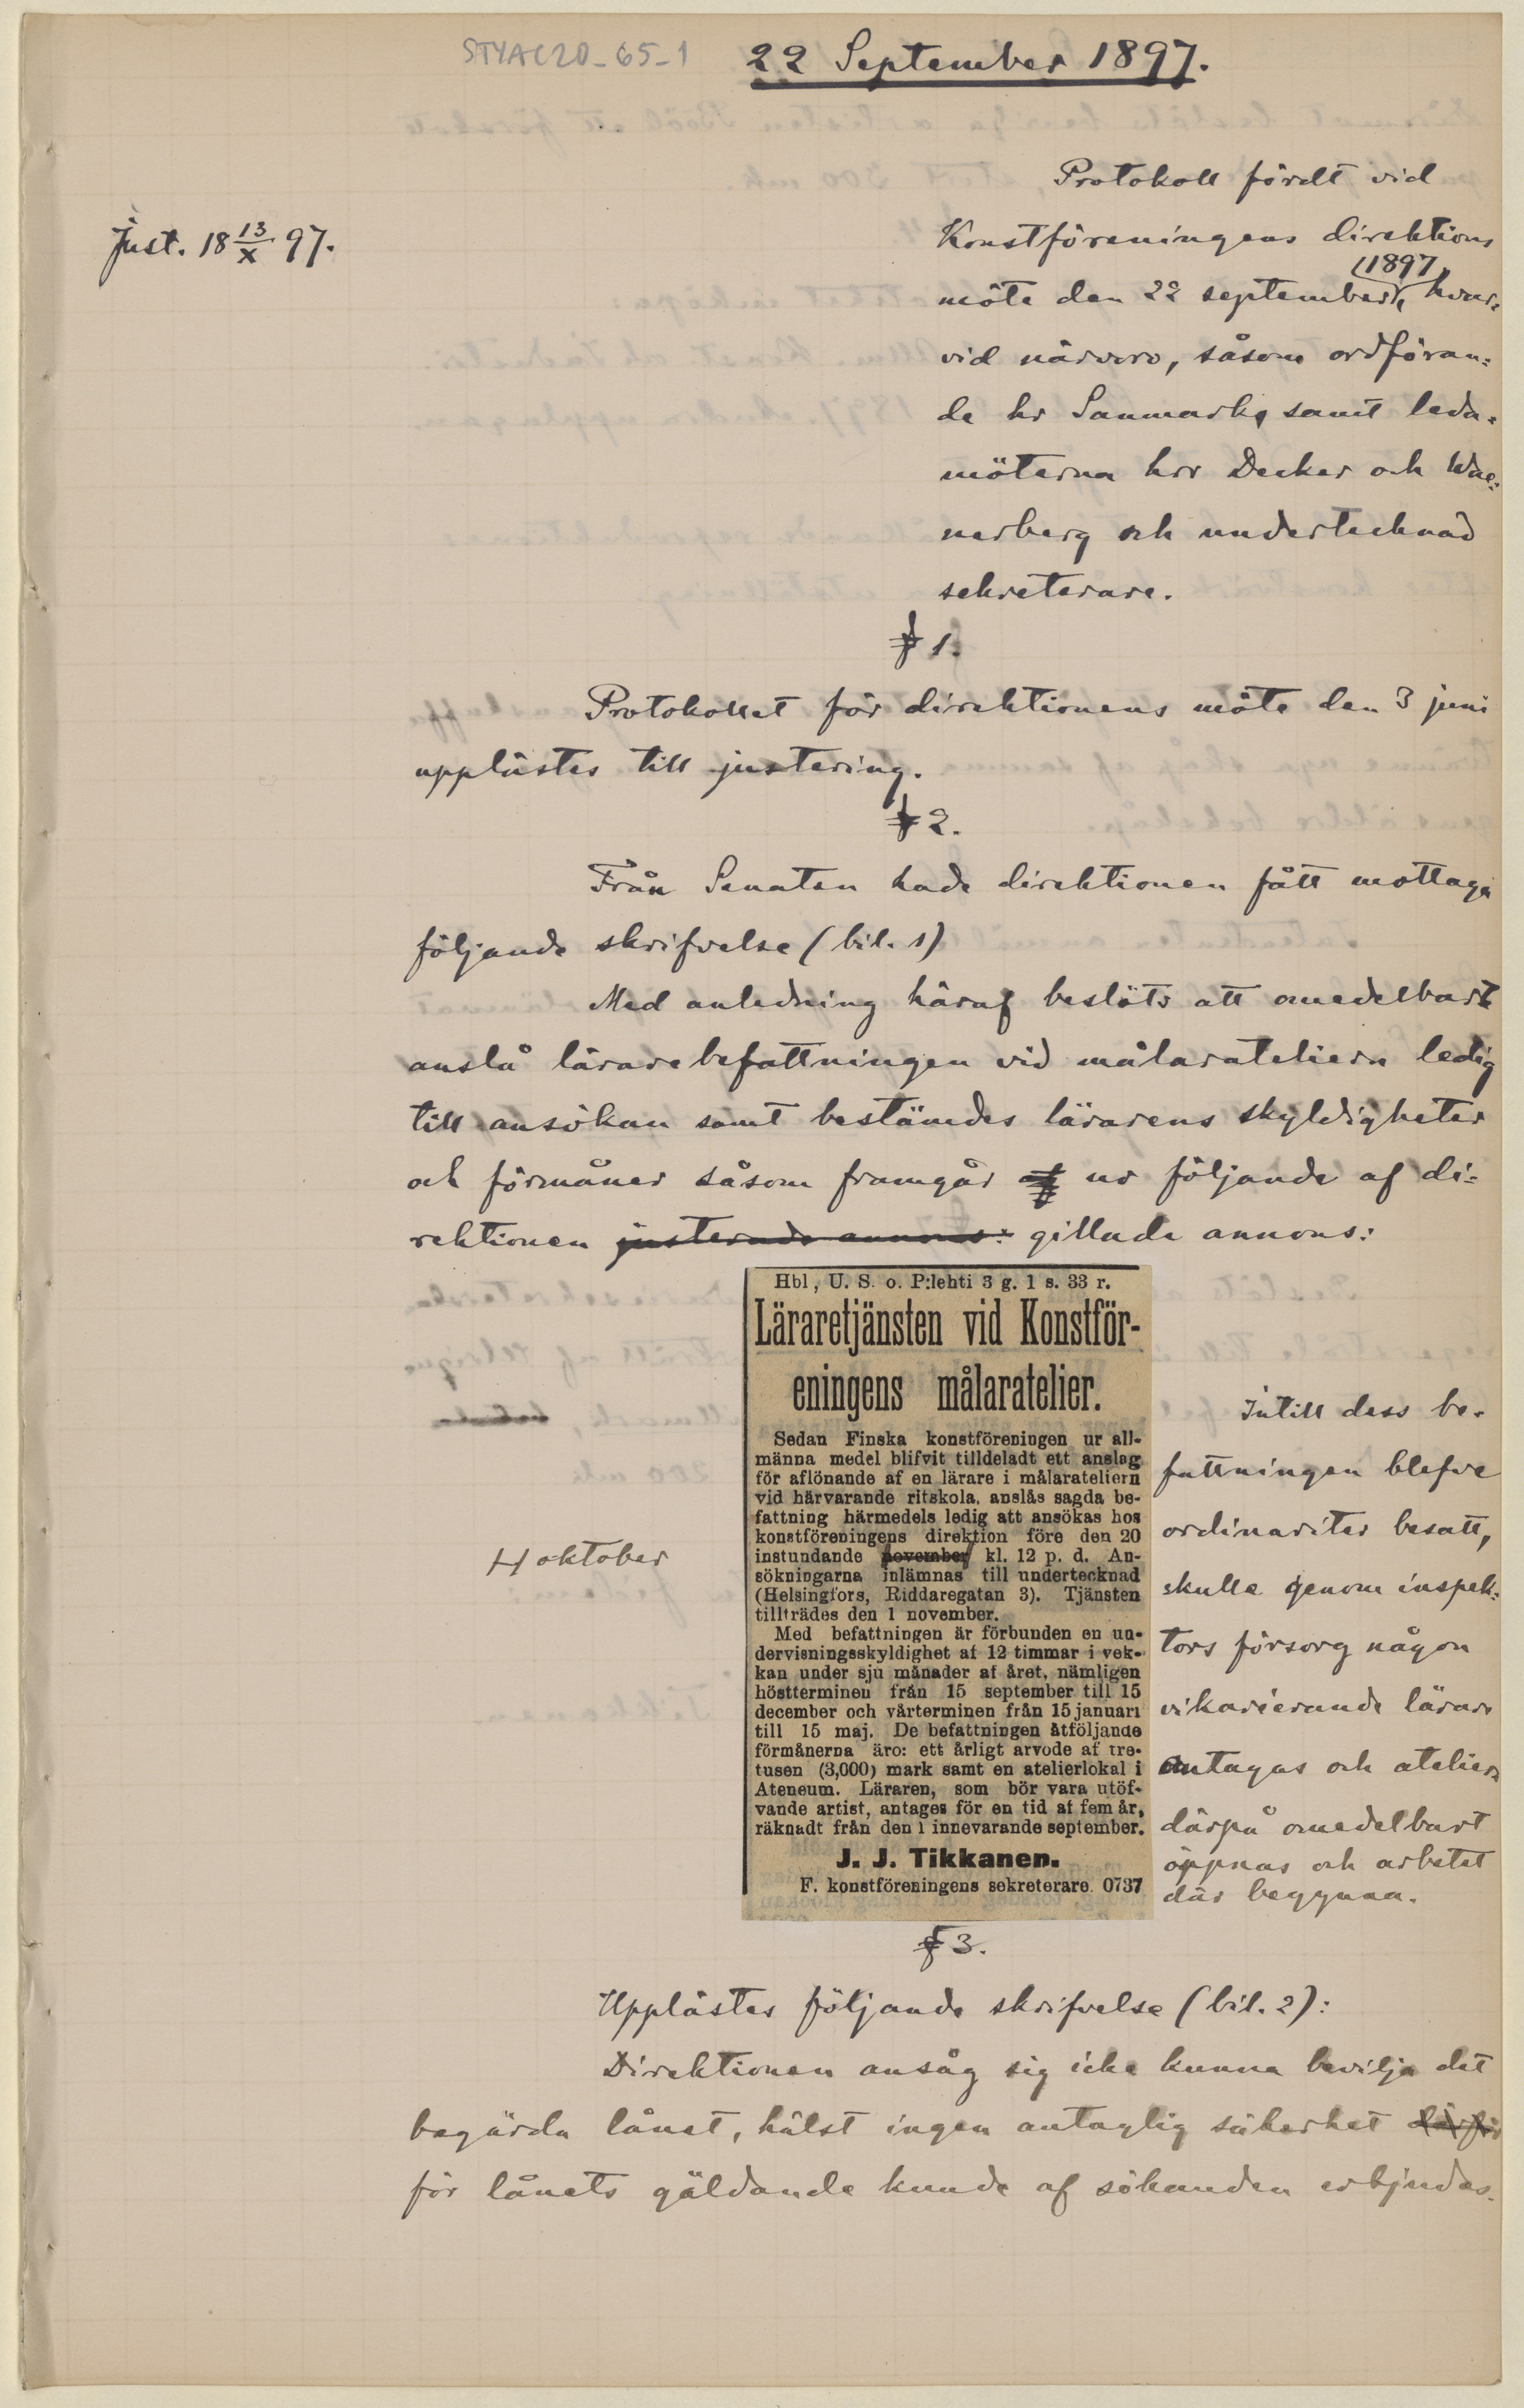 STYAC20_65_1
22 September 1897.
Just. 18 13/X 97.
Protokoll fördt vid
Konstföreningens direktions
möte den 22 september 1897, hvar-
vid närvoro, såsom ordföran-
de hr Sanmark, samt leda-
möterna hrr Decker och Wae-
nerberg och undertecknad
sekreterare.
§ 1.
Protokollet för direktionens möte den 3 juni
upplästes till justering.
§ 2.
Från Senaten hade direktionen fått mottaga
följande skrifvelse (bil. 1)
Med anledning häraf beslöts att omedelbart
anslå lärarebefattningen vid målarateliern ledig
till ansökan samt bestämdes lärarens skyldigheter
och förmåner såsom framgår af ur följande af di-
rektionen justerade annons: gillade annons:
Hbl, U. S. o. P:lehti 3 g. 1 s. 33 r.
Läraretjänsten vid Konstför-
eningens målaratelier.
Sedan Finska konstföreningen ur all-
männa medel blifvit tilldeladt ett anslag
för aflönande af en lärare i målarateliern
vid härvarande ritskola, anslås sagda be-
fattning härmedels ledig att ansökas hos
konstföreningens direktion före den 20
instundande november kl. 12 p. d. An-
sökningarna inlämnas till undertecknad
(Helsingfors, Riddaregatan 3). Tjänsten
tillträdes den 1 november.
Med befattningen är förbunden en un-
dervisningsskyldighet af 12 timmar i vek-
kan under sju månader af året, nämligen
höstterminen från 15 september till 15
december och vårterminen från 15 januari
till 15 maj. De befattningen åtföljande
förmånerna äro: ett årligt arvode af tre-
tusen (3,000) mark samt en atelierlokal i
Ateneum. Läraren, som bör vara utöf-
vande artist, antages för en tid af fem år,
räknadt från den 1 innevarande september.
J. J. Tikkanen.
F. konstföreningens sekreterare. 0737
H oktober
Intill dess be-
fattningen blefve
ordinariter besatt,
skulle genom inspek-
tors försorg någon
vikarierande lärare
antagas och ateliern
därpå omedelbart
öppnas och arbetet
där begynna.
§ 3.
Upplästes följande skrifvelse (bil. 2):
Direktionen ansåg sig icke kunna bevilja det
begärda lånet, hälst ingen antaglig säkerhet därför
för lånets gäldande kunde af sökanden erbjudas.